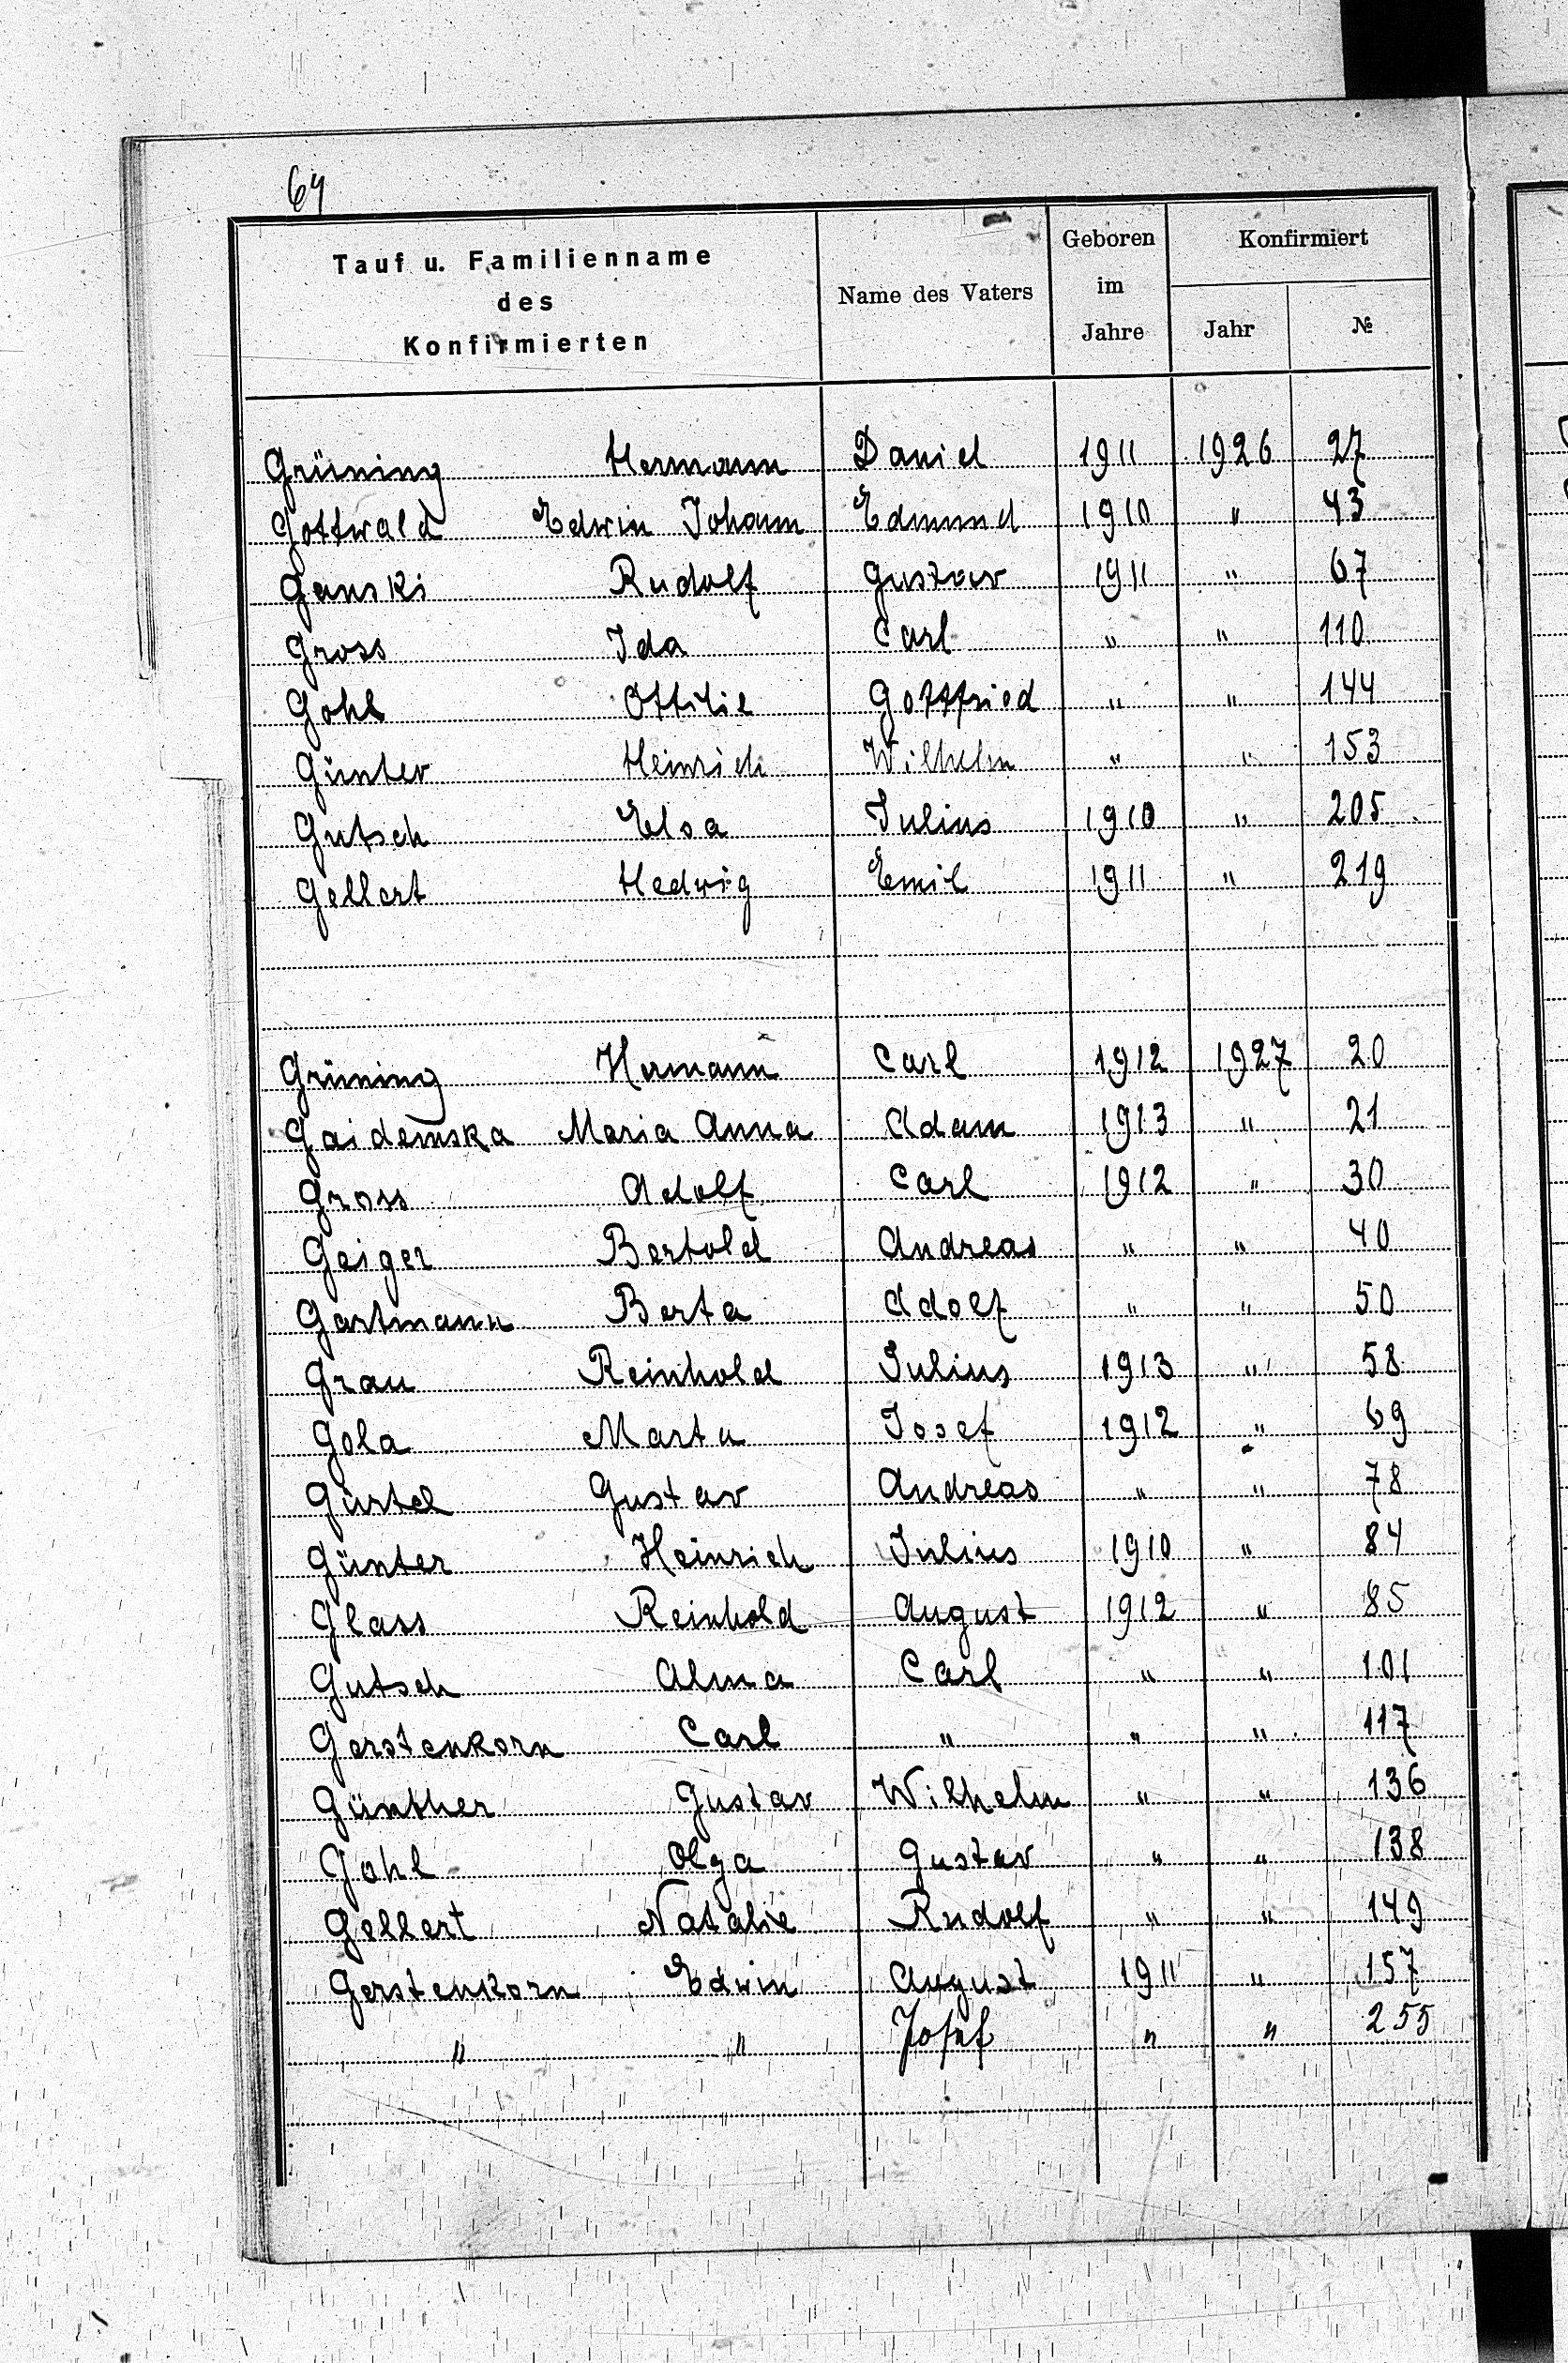 64
Tauf u. Familienname des Konfirmierten Name des Vaters Geboren im Jahre Konfirmiert Jahr №
Grüning Hermann Daniel 1911 1926 27
Gottwald Edwin Johann Edmund 1910 " 43
Ganski Rudolf Gustav 1911 " 67
Gross Ida Carl " " 110
Gohl Ottilie Gottfried " " 144
Günter Heinrich Wilhelm " " 153
Gutsch Elsa Julius 1910 " 205
Gellert Hedwig Emil 1911 " 219
Grüning Hermann Carl 1912 1927 20
Gaidemska Maria Anna Adam 1913 " 21
Gross Adolf Carl 1912 " 30
Geiger Bertold Andreas " " 40
Gartmann Berta Adolf " " 50
Grau Reinhold Julius 1913 " 58
Gola Marta Josef 1912 " 69
Gürtel Gustav Andreas " " 78
Günter Heinrich Julius 1910 " 84
Glass Reinhold August 1912 " 85
Gutsch Alma Carl " " 101
Gerstenkorn Carl " " " 117
Günther Gustav Wilhelm " " 136
Gohl Olga Gustav " " 138
Gellert Natalie Rudolf " " 149
Gerstenkorn Edwin August 1911 " 157
" " Josef " " 255